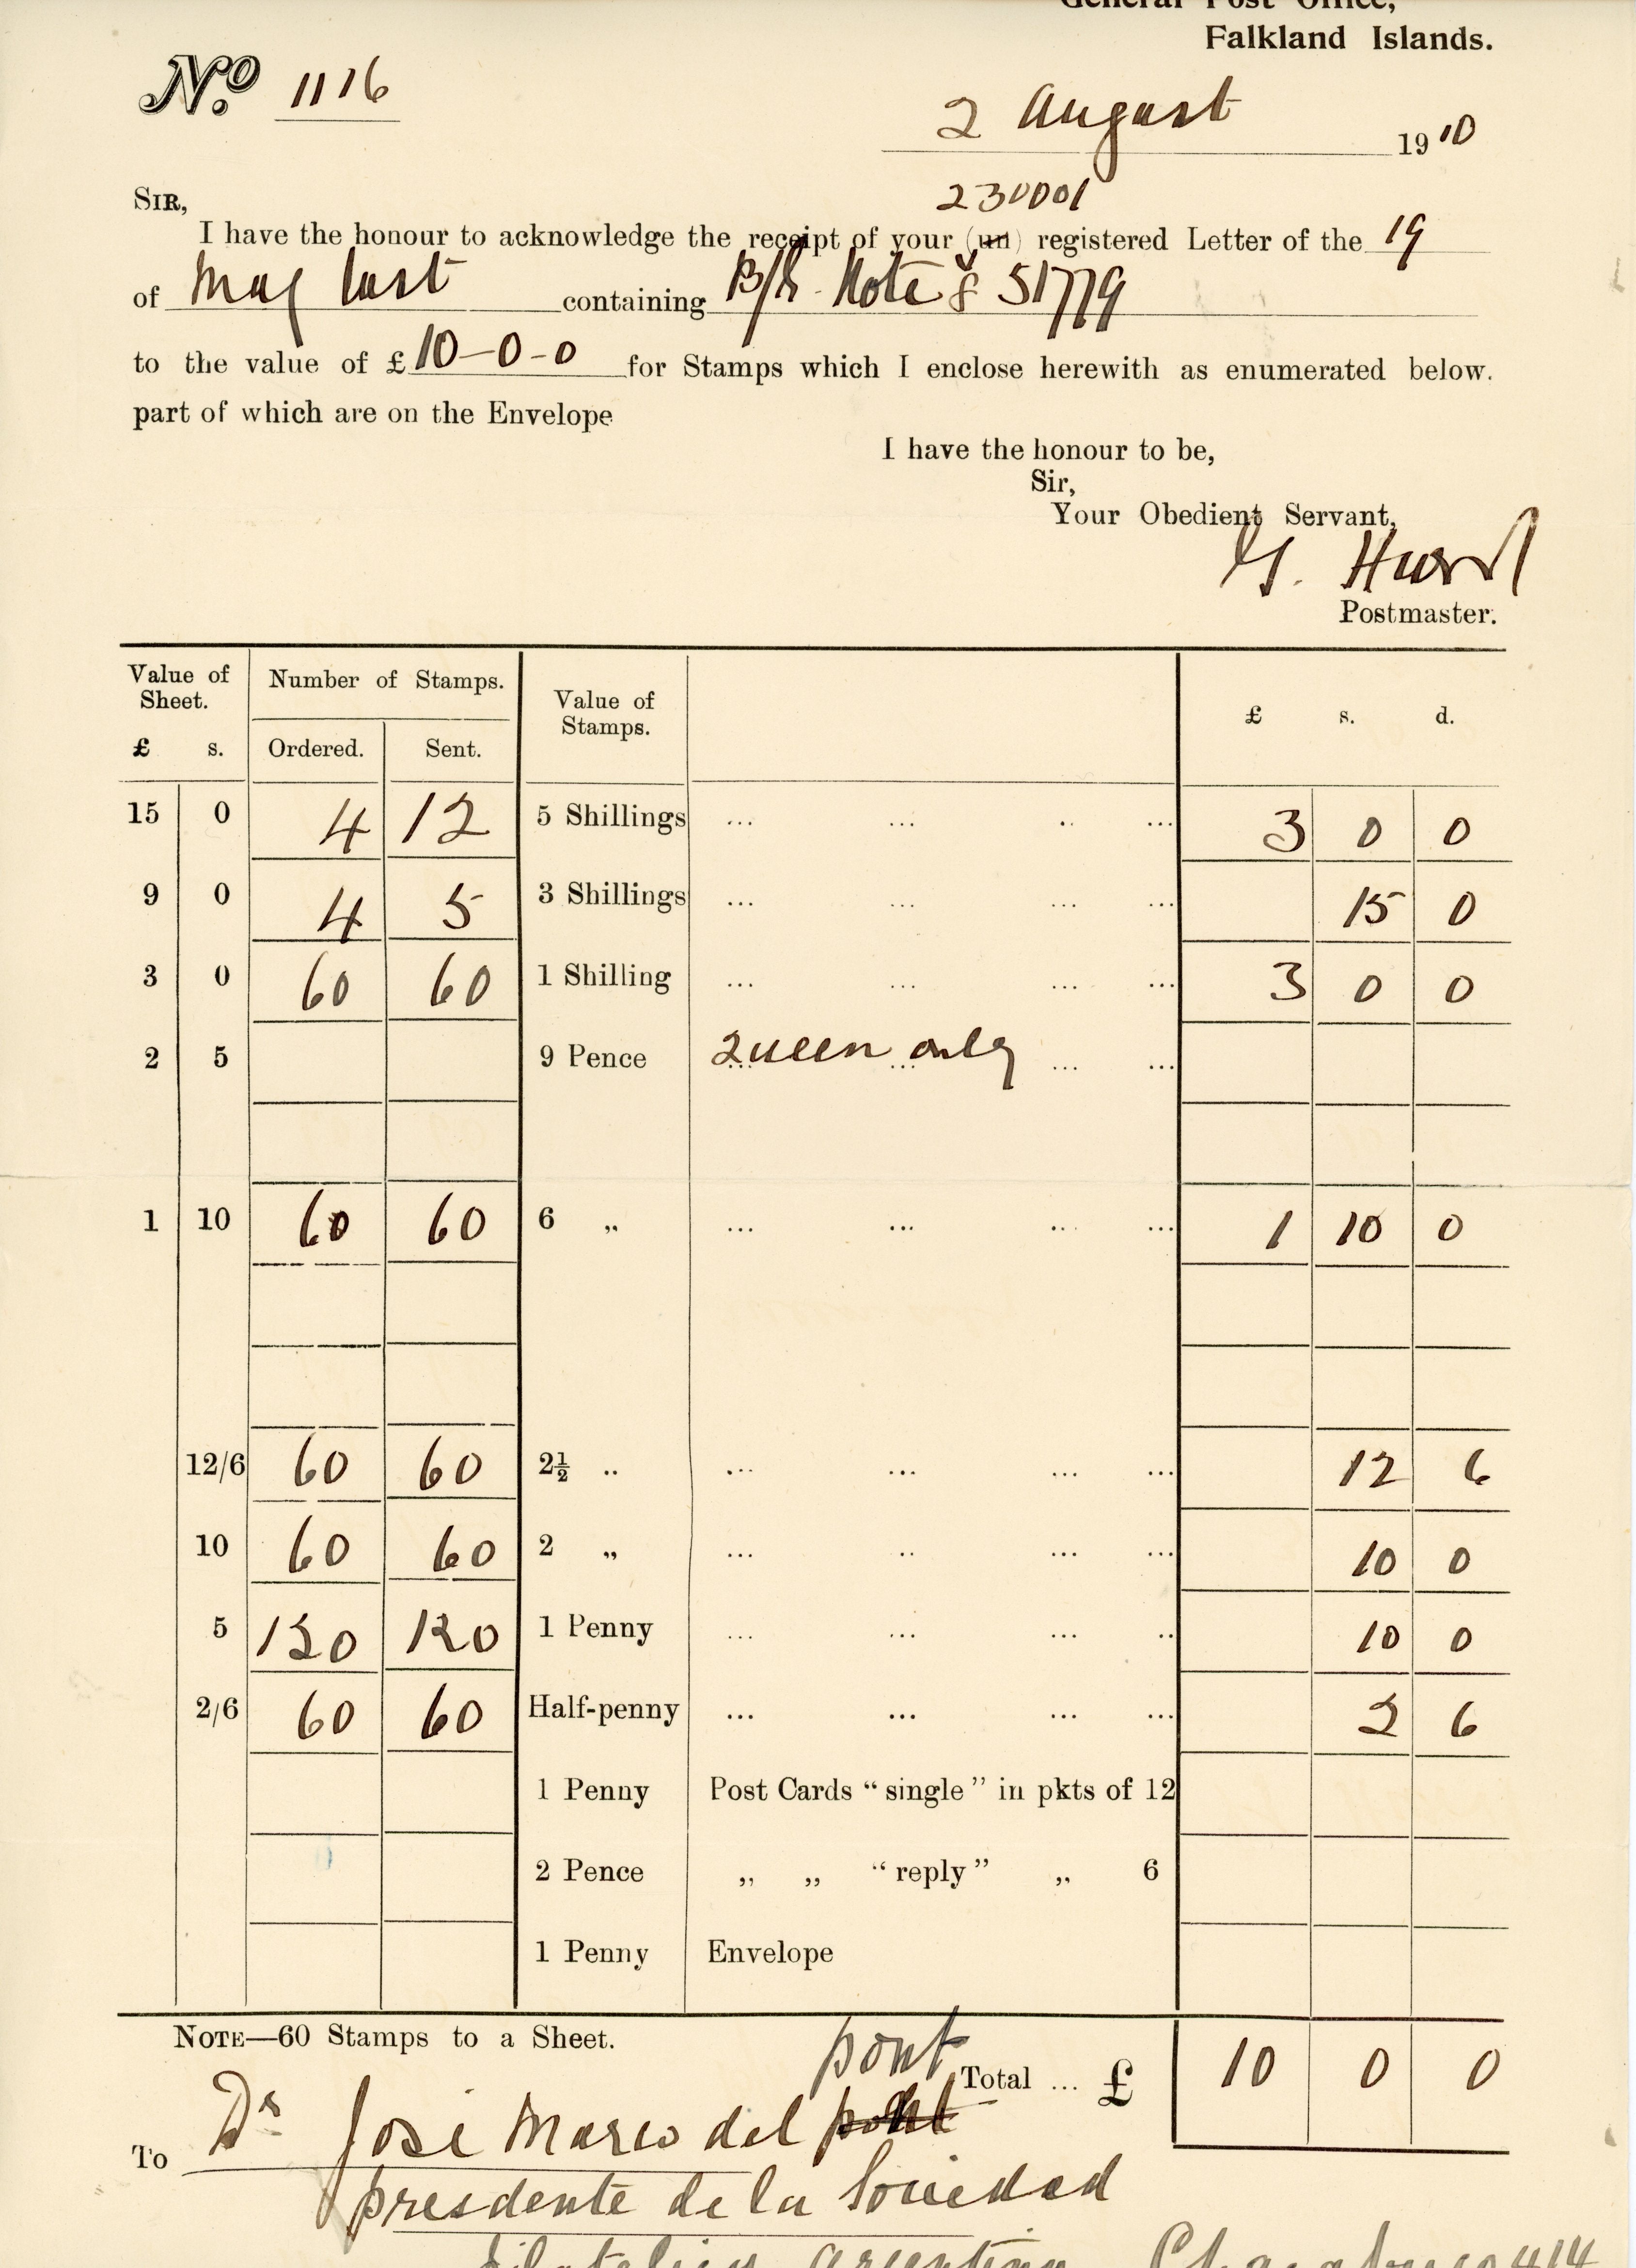 General Post Office,
Falkland Islands.
No. 1116
2 August 1910
230001
SIR,
I have the honour to acknowledge the receipt of your (un) registered Letter of the 19
of May last containing B/k Note 51779
to the value of £ 10-0-0 for Stamps which I enclose herewith as enumerated below.
part of which are on the Envelope
I have the honour to be,
Sir,
Your Obedient Servant,
Postmaster.
Value of Sheet. Number of Stamps. Value of Stamps. £ s. d.
£ s. Ordered. Sent.
15 0 4 12 5 Shillings ... ... .. ... 3 0 0
9 0 4 5 3 Shillings ... ... ... ... 15 0
3 0 60 60 1 Shilling ... ... ... ... 3 0 0
2 5 9 Pence Queen only ... ...
1 10 60 60 6 „ ... ... ... ... 1 10 0
12/6 60 60 2½ .. ... ... ... ... 12 6
10 60 60 2 „ ... .. ... ... 10 0
5 120 120 1 Penny ... ... ... .. 10 0
2/6 60 60 Half-penny ... ... ... ... 2 6
1 Penny Post Cards “single” in pkts of 12
2 Pence „ „ “reply” „ 6
1 Penny Envelope
NOTE—60 Stamps to a Sheet.
pont
Total ... £ 10 0 0
To Dr José Marco del pont
presdente de la Sociedad
filatelica argentina